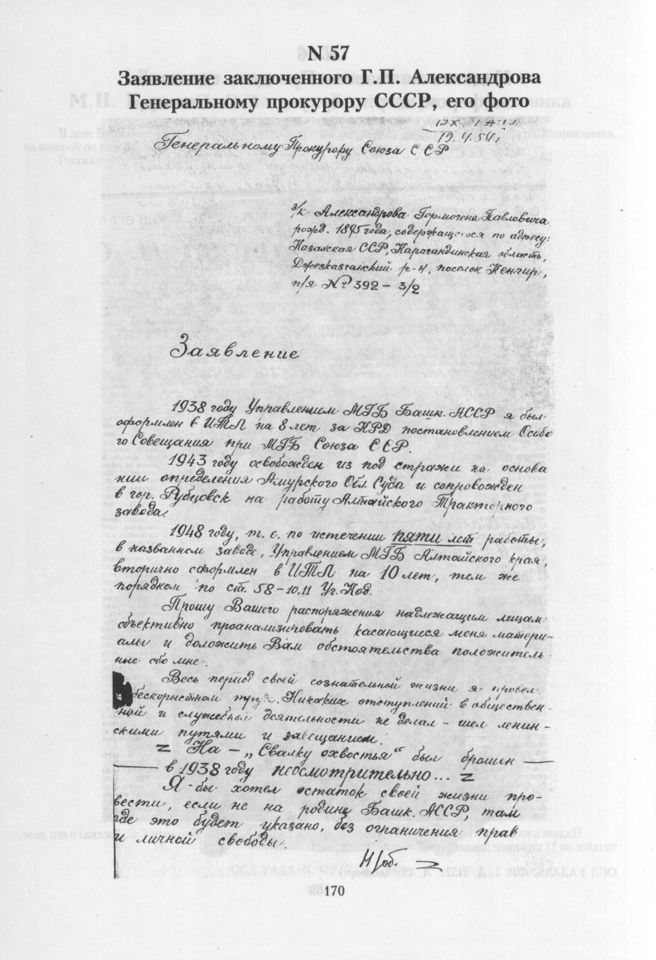 N 57
Заявление заключенного Г.П. Александрова
Генеральному прокурору СССР, его фото
19.4.54,
Генеральному Прокурору Союза ССР
з/к Александрова Гермогена Павловича
рожд. 1895 года, содержащегося по адресу:
Казахская ССР, Карагандинская область,
Джезказганский р-н, поселок Кенгир,
п/я № 392 – 3/2
Заявление
1938 году Управлением МГБ Башк. АССР я был
оформлен в ИТЛ на 8 лет за КРД постановлением Особо
го Совещания при МГБ Союза ССР.
1943 году освобожден из под стражи на основа
нии определения Амурского Обл. Суда и сопровожден
в гор. Рубцовск на работу Алтайского Тракторного
завода.
1948 году, т. е. по истечении пяти лет работы,
в названном заводе, Управлением МГБ Алтайского края,
вторично оформлен в ИТЛ на 10 лет, тем же
порядком по ст. 58–10,11 Уг. Код.
Прошу Вашего распоряжения надлежащим лицам
объективно проанализировать касающиеся меня матери-
алы и доложить Вам обстоятельства положитель-
ные обо мне.
Весь период своей сознательной жизни я провел
в бескорыстном труде. Никаких отступлений в обществен-
ной и служебной деятельности не делал – шел ленин-
скими путями и завещанием.
На – „Свалку охвостья" был брошен
в 1938 году неосмотрительно...
Я бы хотел остаток своей жизни про-
вести, если не на родине Башк. АССР, там
где это будет указано, без ограничения прав
и личной свободы.
170